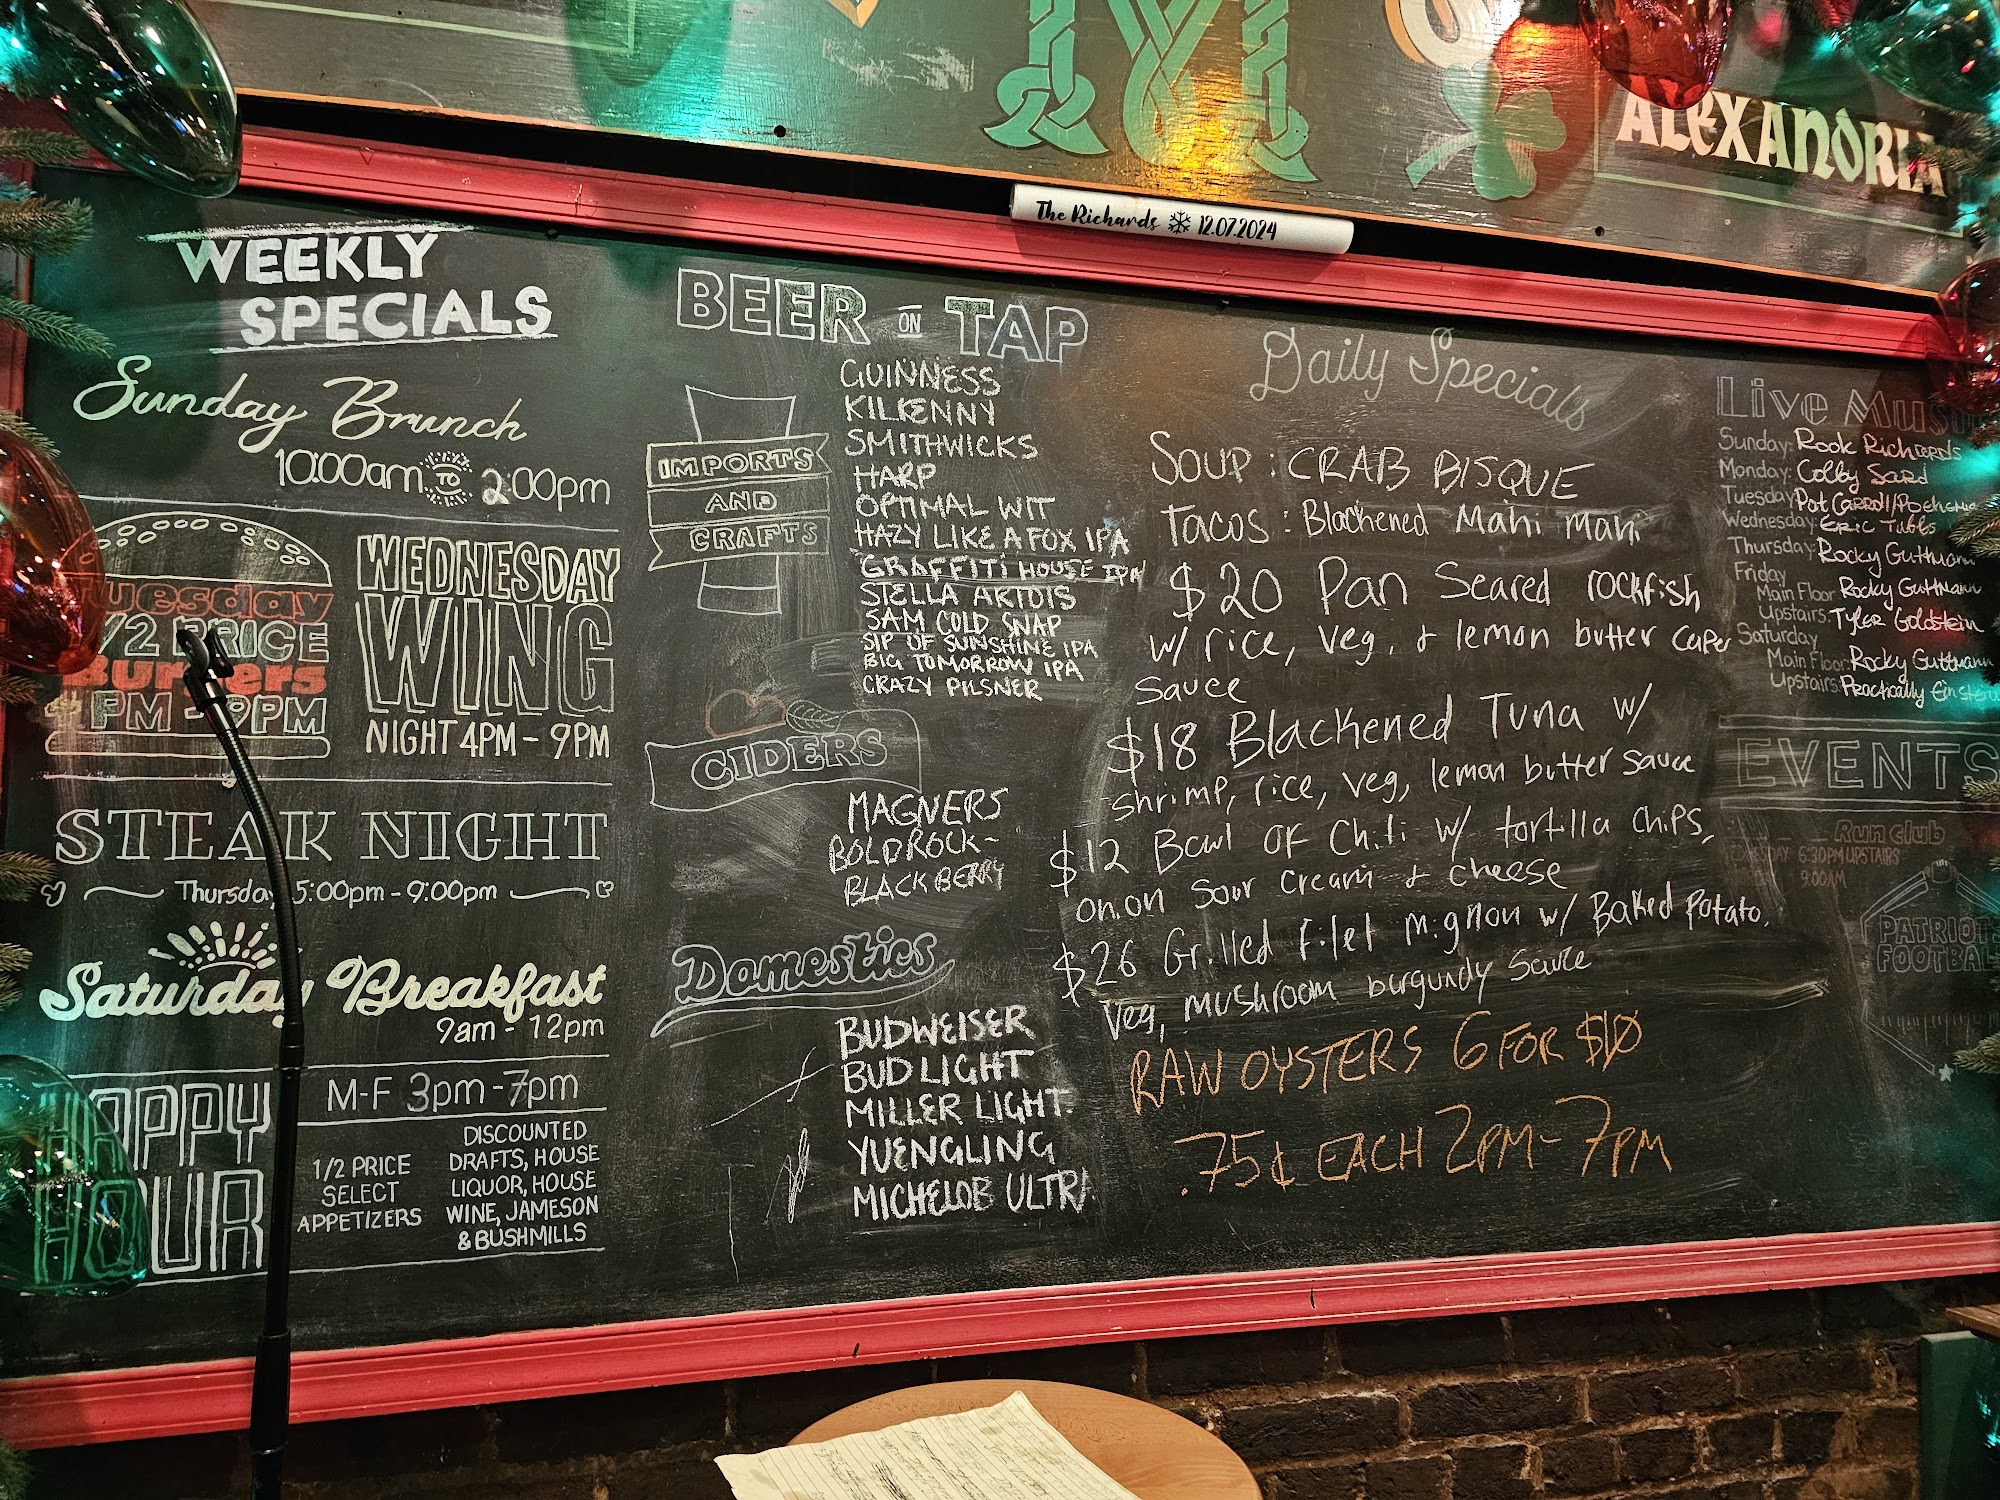 M
ALEXANDRIA
The Richards 12.07.2024
WEEKLY
SPECIALS
Sunday Brunch
10:00am TO 2:00pm
Tuesday
1/2 PRICE
Burgers
4PM - 9PM
WEDNESDAY
WING
NIGHT 4PM - 9PM
STEAK NIGHT
Thursday 5:00pm - 9:00pm
Saturday Breakfast
9am - 12pm
HAPPY
HOUR
M-F 3pm-7pm
1/2 PRICE
SELECT
APPETIZERS
DISCOUNTED
DRAFTS, HOUSE
LIQUOR, HOUSE
WINE, JAMESON
& BUSHMILLS
BEER ON TAP
IMPORTS
AND
CRAFTS
GUINNESS
KILKENNY
SMITHWICKS
HARP
OPTIMAL WIT
HAZY LIKE A FOX IPA
GRAFFITI HOUSE IPA
STELLA ARTOIS
SAM COLD SNAP
SIP OF SUNSHINE IPA
BIG TOMORROW IPA
CRAZY PILSNER
CIDERS
MAGNERS
BOLD ROCK-
BLACKBERRY
Domestics
BUDWEISER
BUD LIGHT
MILLER LIGHT
YUENGLING
MICHELOB ULTRA
Daily Specials
SOUP: CRAB BISQUE
TACOS: Blackened Mahi Mahi
$20 Pan Seared rockfish
w/ rice, veg, + lemon butter caper
sauce
$18 Blackened Tuna w/
shrimp, rice, veg, lemon butter sauce
$12 Bowl of Chili w/ tortilla chips,
onion sour cream + cheese
$26 Grilled filet mignon w/ Baked Potato,
veg, mushroom burgundy sauce
RAW OYSTERS 6 FOR $10
.75¢ EACH 2PM-7PM
Live Mus
Sunday: Rook Richards
Monday: Colby Sard
Tuesday: Pat Carroll/
Wednesday: Eric Tubbs
Thursday: Rocky Guttmann
Friday
Main Floor Rocky Guttmann
Upstairs: Tyler Goldstein
Saturday
Main Floor: Rocky Guttmann
Upstairs: Practically Einstein
EVENTS
Run club
6:30PM UPSTAIRS
9:00AM
PATRIOTS
FOOTBAL